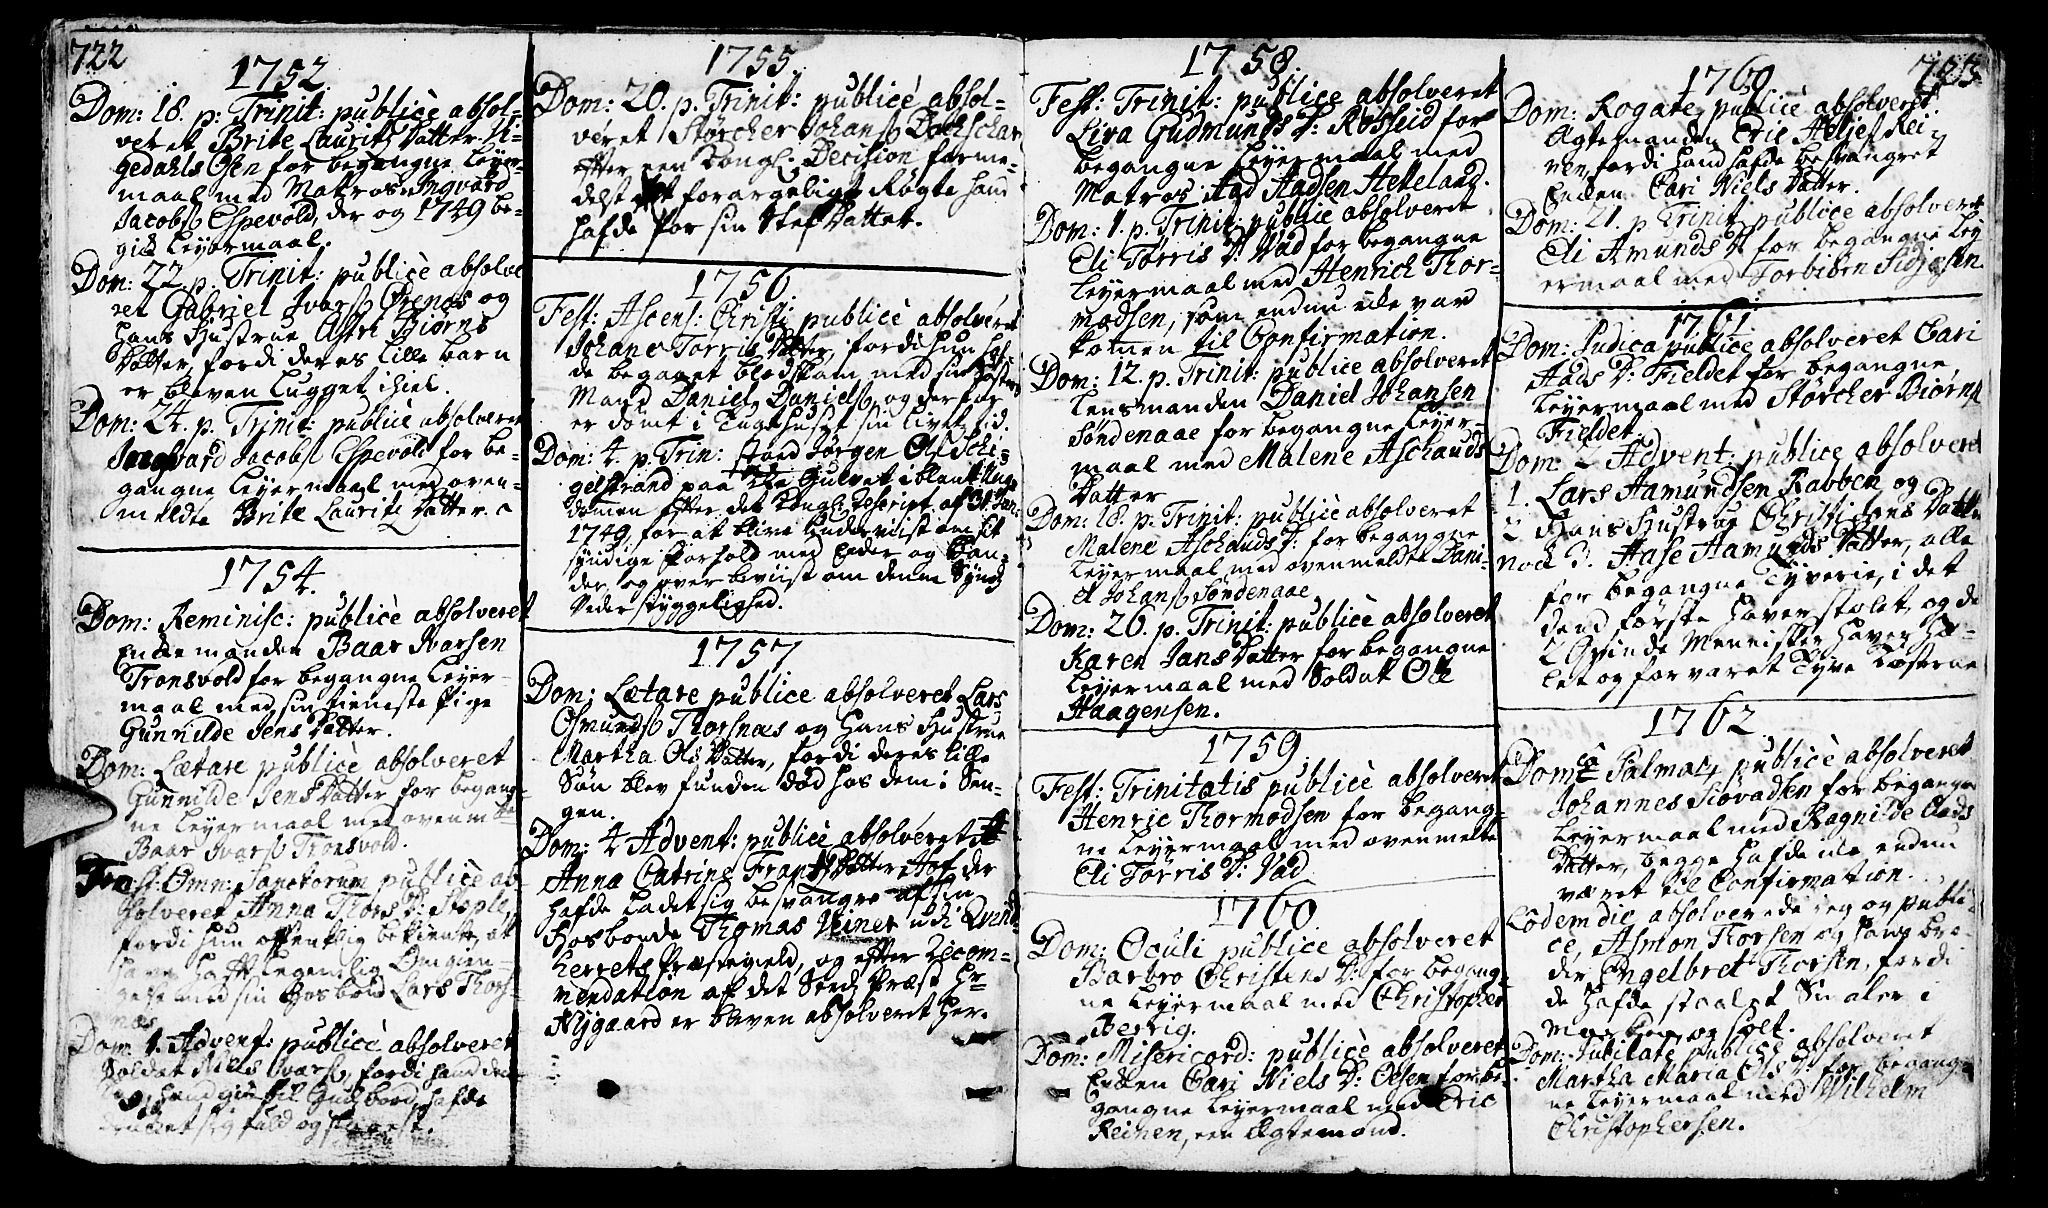 722
1752.
Dom: 18. p. Trinit: publicè absol-
veret Brite Laurits Datter Ti-
gedahls Øsen for begangne Leyer-
maal med Matros Ingvard
Jacobs: Espevold, der og 1749 be-
gik Leyermaal.
Dom: 22 p. Trinit: publicè absolve-
ret Gabriel Ivars: Ørenæs og
hans Hustrue Astri Biørns
Datter, fordi deres lille barn
er bleven ligget ihiel.
Dom: 24. p. Trinit: publicè absolveret
Ingvard Jacobs: Espevold for be-
gangne Leyermaal med oven-
meldte Brite Laurits Datter.
1754.
Dom: Reminisc: publicè absolveret
Enkemanden Baar Ivarsen
Tronsvold for begangne Leyer-
maal med sin tieneste Pige
Gunnilde Jens Datter.
Dom: Lætare publicè absolveret
Gunnilde Jens Datter for begang-
ne Leyermaal med ovenm:
Baar Ivars: Tronsvold.
Fest: Omn: Sanctorum publicè ab-
solveret Anna Thors D:
fordi hun offentlig bekiente, at
have haft Legemlig Omgien-
gelse med sin Hosbond Lars Thors-
næs
Dom. 1. Advent: publicè absolveret
Soldat Niels Ivars: fordi hand den
hand gik til Guds bord, hafde
drucket sig fuld og
1755.
Dom: 20. p. Trinit: publicè absol-
veret Størcher Johans: Dochschar
efter een Kongl: Decision forme-
delst et forargeligt Røgte hand
hafde for sin Stef Datter.
1756.
Fest: Ascens: Christi publicè absolveret
Johane Torris Datter, fordi hun haf-
de begaaet blodskam med sin Søsters
Mand Daniel Daniels: og derfor
er dømt i Tugthuset sin livs tid.
Dom: 4. p. Trin: stoed Jørgen Ols: Schi-
gelstrand paa Kirke Gulvet iblant Ung-
dommen efter det Kongl: Rescript af 31. Jan:
1749, for at blive underviist om sit
syndige forhold med Eeder og Ban-
der, og overbeviist om denne Synds
Vederstyggelighed.
1757
Dom: Lætare publice absolveret Lars
Osmunds: Thorsnæs og hans Hustrue
Martha Ols Datter, fordi deres lille
Søn blev funden død hos dem i Sen-
gen.
Dom: 4 Advent: publicè absolveret
Anna Catrine Frants Datter, der
hafde ladet sig besvangre af sin
Hosbonde Thomas Meiner udi Qvind-
herrets Præstegield, og efter Recom-
mendation af det Steds Præst Hr
Nygaard er bleven absolveret her.
1758.
Fest: Trinit: publicè absolveret
Siva Gudmunds D: Rosseid for
begangne Leyermaal med
Matros Aad Aadsen Hetteland.
Dom: 1. p. Trinit: publicè absolveret
Eli Torris D: Vad for begangne
Leyermaal med Henrich Thor-
modsen, som endnu icke var
kommen til Confirmation.
Dom: 12. p. Trinit: publicè absolveret
Lensmanden Daniel Johansen
Søndenaae for begangne Leyer-
maal med Malene Aschauds
Datter
Dom: 18. p. Trinit: publicè absolveret
Malene Aschauds D: for begangne
Leyermaal med ovenmeldte Dani-
el Johans: Søndenaae
Dom: 26. p. Trinit: publicè absolveret
Karen Jans Datter for begangne
Leyermaal med Soldat Ole
Haagensen.
1759.
Fest: Trinitatis publicè absolveret
Henric Thormodsen for begang-
ne Leyermaal med ovenmelte
Eli Torris D: Vad
1760.
Dom: Oculi publicè absolveret
Barbro Christens D: for begang-
ne Leyermaal med Christopher
Berrig.
Dom: Misericord: publicè absolveret
Enken Cari Niels D: Ølsen for be-
gangne Leyermaal med Eric
Reinen, een Ægtemand.
723
1760
Dom: Rogate publicè absolveret
Ægtemanden Eric Heljes: Rei-
nen, fordi hand hafde besvangret
Enken Cari Niels Datter.
Dom: 21. p Trinit: publicè absolveret
Eli Amunds D: for begangne Ley
ermaal med Torbiørn
1761.
Dom: Judica publicè absolveret Cari
Aads D: Fieldet for begangne
Leyermaal med Størcher Biørns:
Fieldet.
Dom: 2 Advent: publice absolveret
1. Lars Aamundsen Rabben og
2 hans Hustrue Christi Jens Datter
nock 3. Aase Aamunds Datter, alle
for begangne Tyverie, i det
dend første haver stolet, og de
2 Qvinde Mennisker haver hæ-
let og forvaret Tyve Kosterne
1762
Dom:ca Palmar: publicè absolveret
Johannes Siovadsen for begangne
Leyermaal med Ragnilde Aads
Datter, begge hafde icke endnu
været til Confirmation.
Eodem die absolverede jeg og publi-
cè, Asmon Thorsen og hans bro-
der Engelbret Thorsen, fordi
de hafde staalet Smaler i
Marken og solt.
Dom: Jubilate publicè absolveret
Martha Maria Ols D: for begang-
ne Leyermaal med Wilhelm
Christophersen.